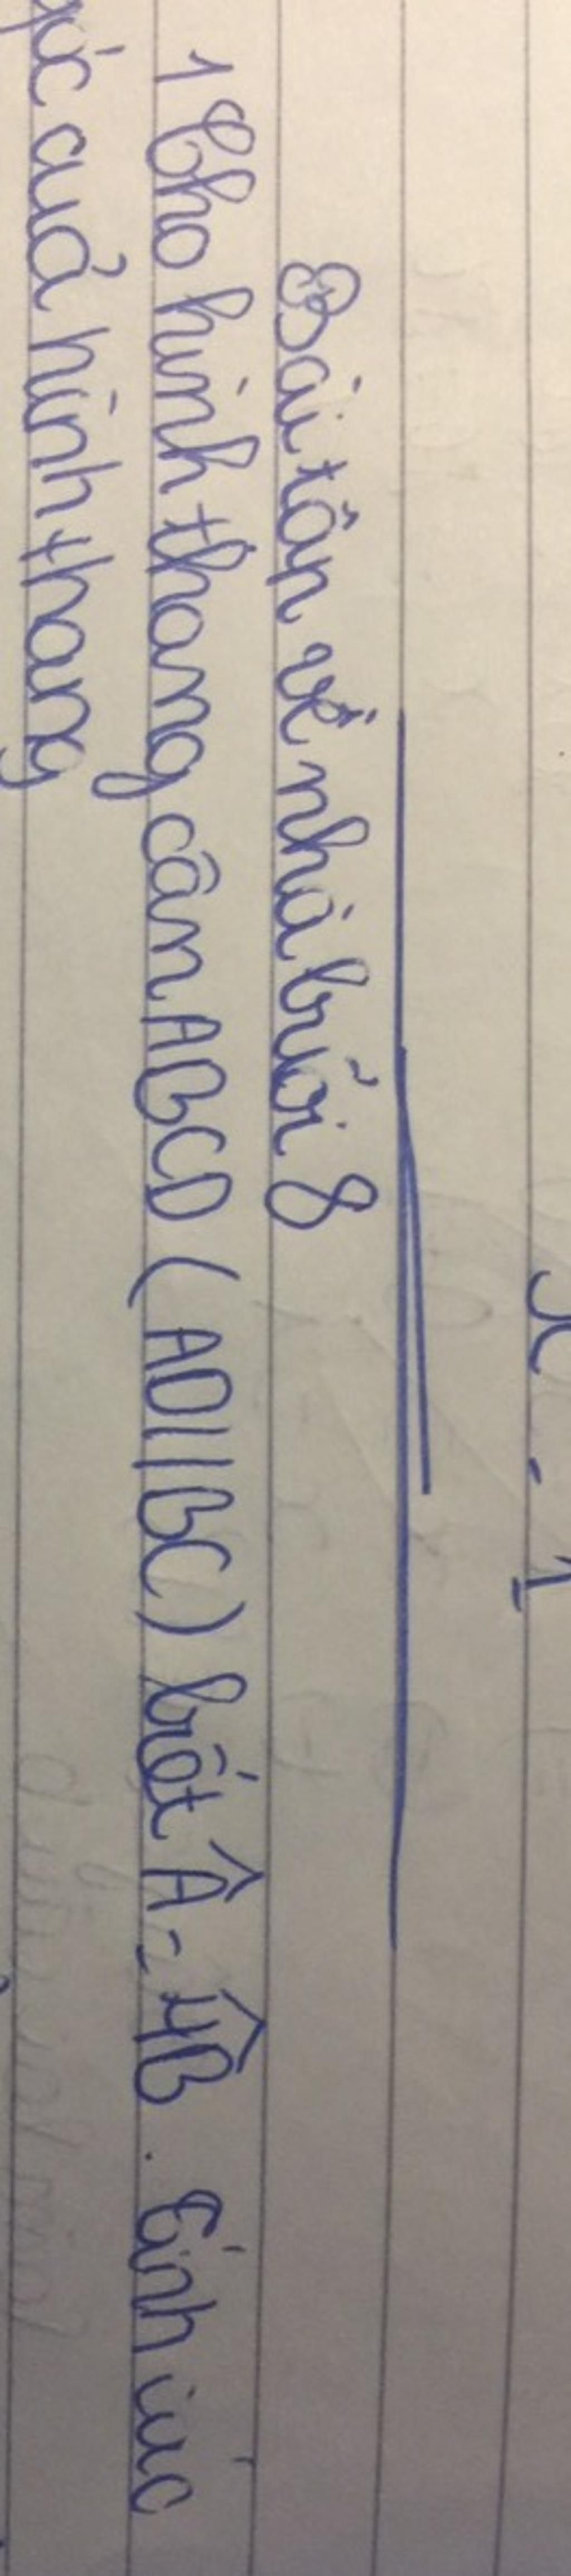 x - 1
Bài tập về nhà buổi 8
1 Cho hình thang cân ABCD (AD//BC) biết Â = 4B̂. Tính các
góc của hình thang